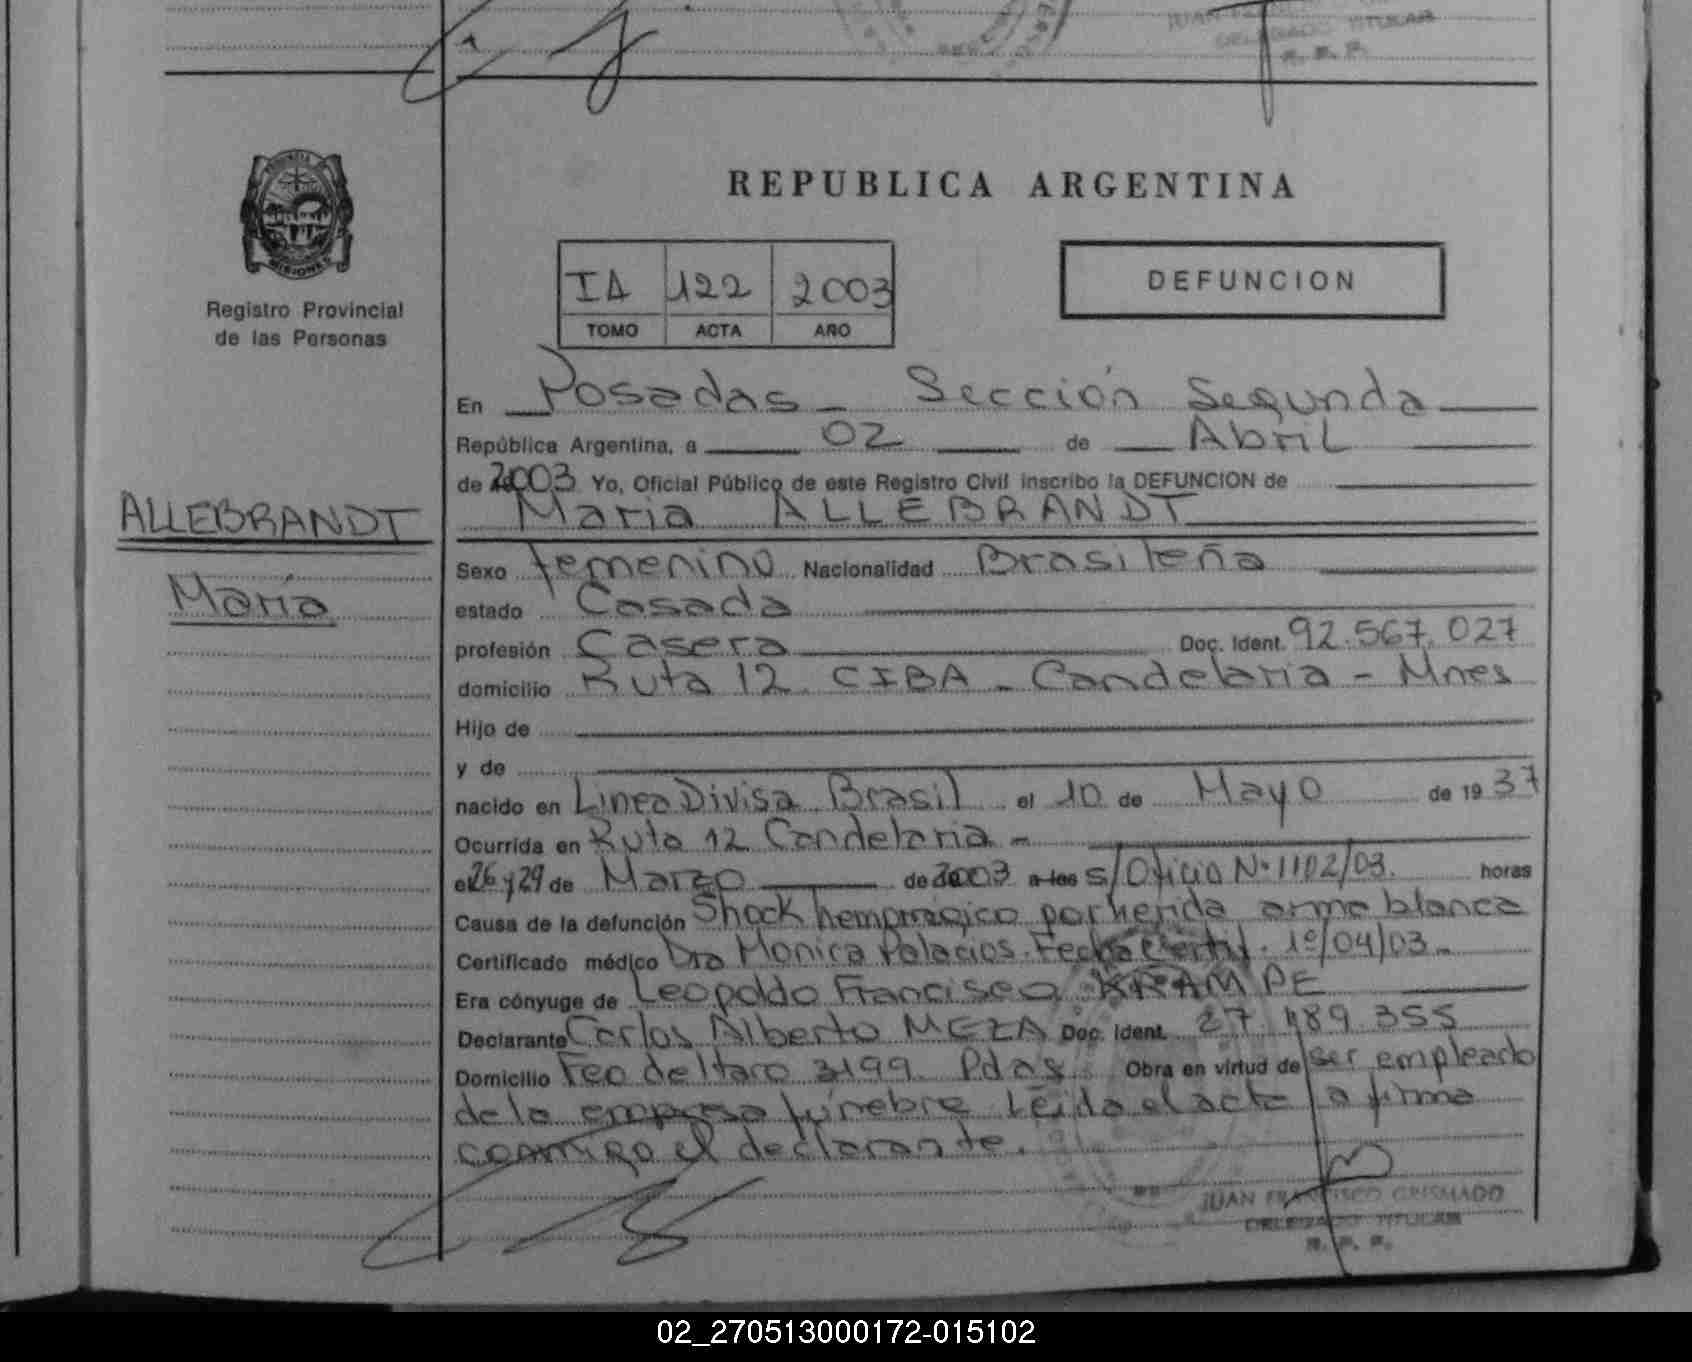 JUAN
DELEGADO TITULAR
R. P. P.
PROVINCIA
MISIONES
Registro Provincial
de las Personas
REPUBLICA ARGENTINA
IA 122 2003
TOMO ACTA AÑO
DEFUNCION
En Posadas - Sección Segunda
República Argentina, a 02 de Abril
de 2003 Yo, Oficial Público de este Registro Civil inscribo la DEFUNCION de
Maria ALLEBRANDT
ALLEBRANDT
María
Sexo femenino Nacionalidad Brasileña
estado Casada
profesión Casera Doc. Ident. 92.567.027
domicilio Ruta 12 CIBA - Candelaria - Mnes
Hijo de
y de
nacido en Linea Divisa Brasil el 10 de Mayo de 1937
Ocurrida en Ruta 12 Candelaria -
el 26 y 29 de Marzo de 2003 a las s/Oficio Nº 1102/03. horas
Causa de la defunción Shock hemorragico por herida arma blanca
Certificado médico Dra Monica Palacios. Fecha Certif. 1º/04/03-
Era cónyuge de Leopoldo Francisco KRAMPE
Declarante Carlos Alberto MEZA Doc. Ident. 27.189.355
Domicilio Feo de Haro 3199 Pdas Obra en virtud de ser empleado
de la empresa fúnebre Leida el acta la firma
conmigo el declarante.
JUAN FRANCISCO GRISMADO
DELEGADO TITULAR
R. P. P.
02_270513000172-015102